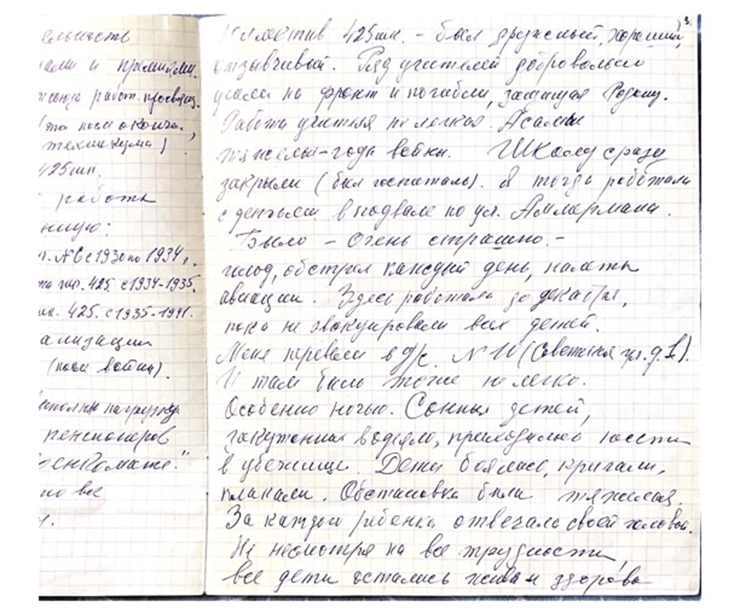 ельность
ами и премиями.
работ. просвещ.
(это после оконча.
техникума)
425шк.
работы
нную:
п. №6 с 1930 по 1934г.
шк. 425. с 1934-1935.
шк. 425. с 1935-1941.
ализации
(после войны).
нагрузку
пенсионеров
енкомате."
но все
3.
Коллектив 425шк. - был дружный, хороший,
отзывчивый. Ряд учителей добровольно
ушли на фронт и погибли, защищая Родину.
Работа учителя не легкая. А самы
тяжелы-года войны. Школу сразу
закрыли (был госпиталь). Я тогда работала
с детьми в подвале по ул. Аммермана.
Было - очень страшно. -
голод, обстрел каждый день, налеты
авиации. Здесь работала до декабря,
пока не эвакуировали всех детей.
Меня перевели в д/с. N 10 (Советская ул. д. 1).
И там было тоже не легко.
Особенно ночью. Сонных детей,
закутанных в одеяло, приходилось нести
в убежище. Дети боялись, кричали,
плакали. Обстановка была тяжелая.
За каждого ребенка отвечала своей головой.
Не несмотря на все трудности,
все дети остались живы и здоровы